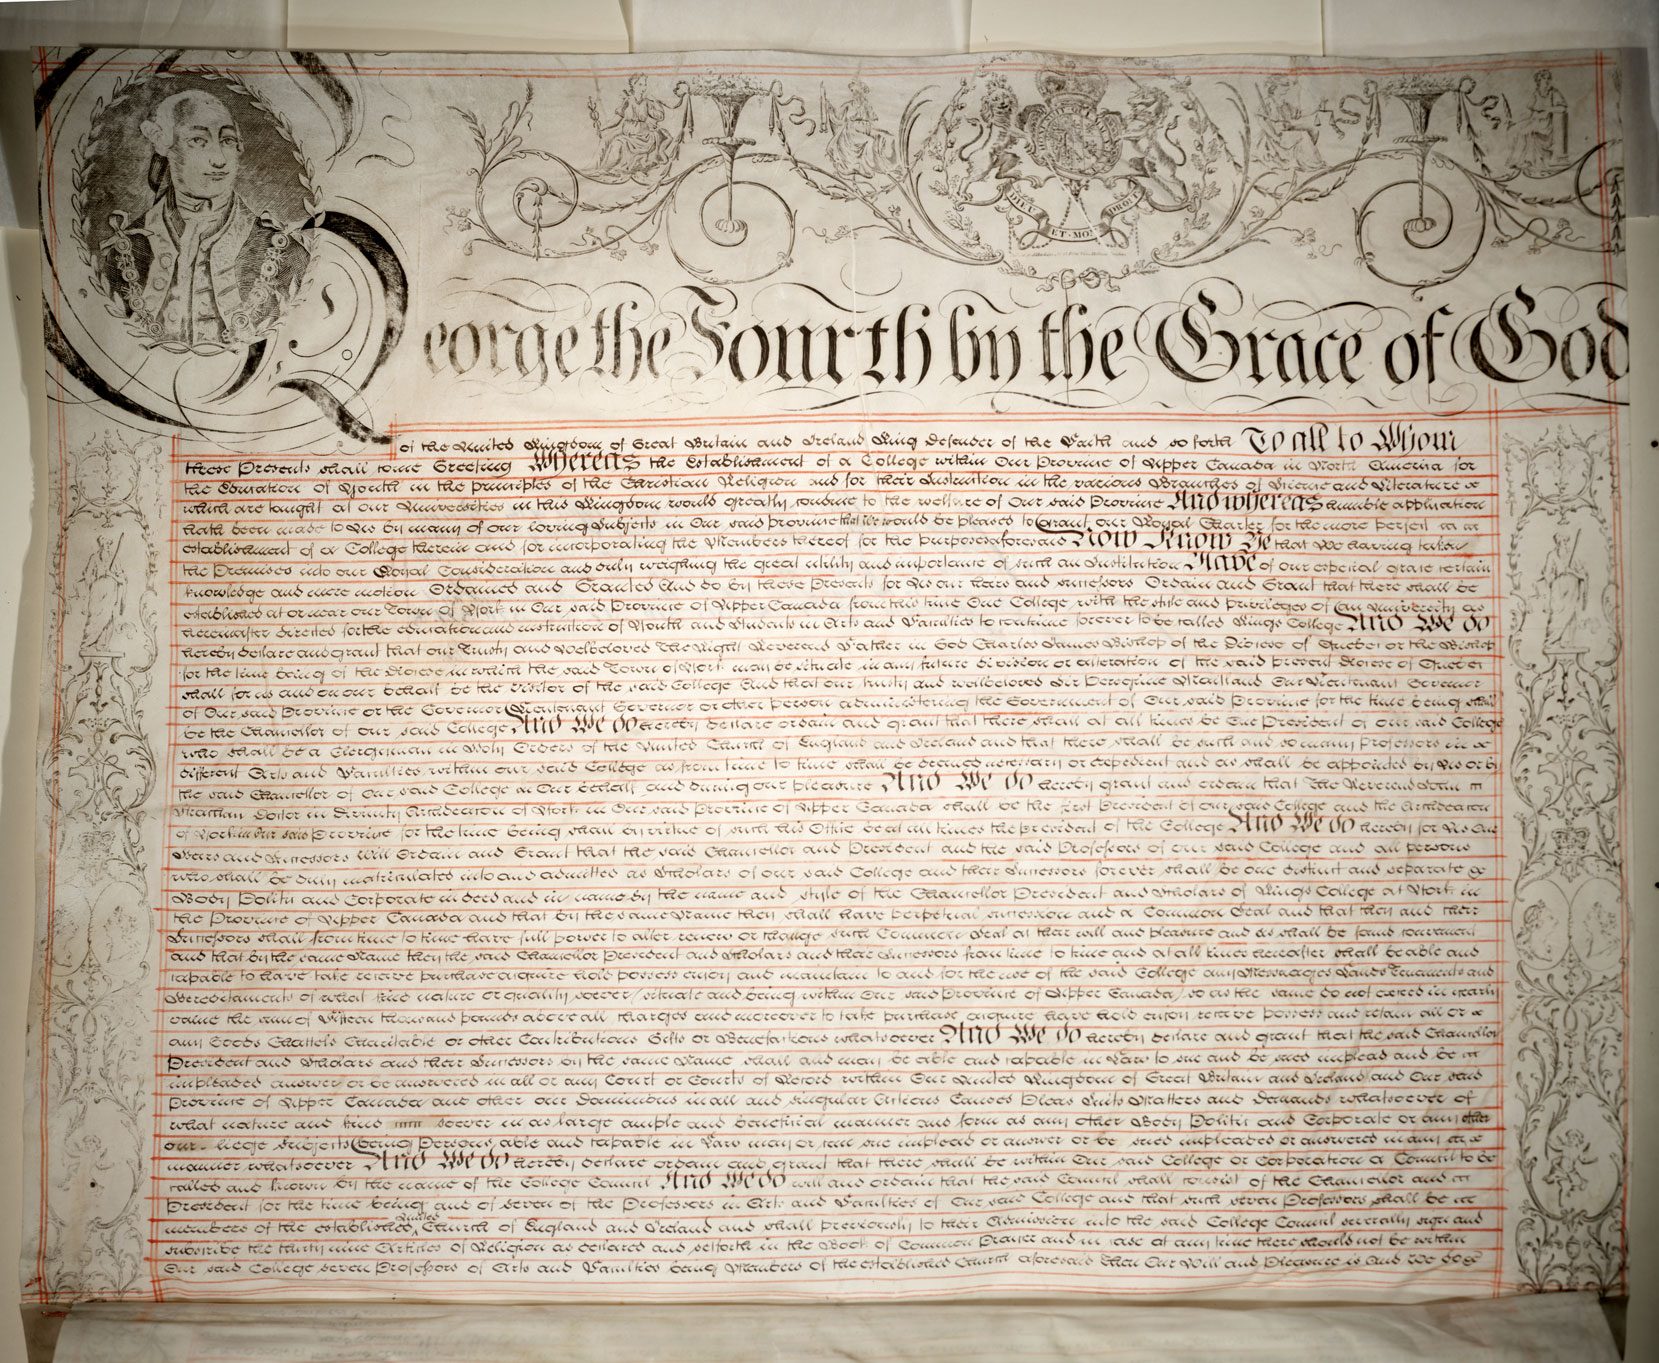 DIEU ET MON DROIT
George the Fourth by the Grace of God
of the United Kingdom of Great Britain and Ireland King Defender of the Faith and so forth To all to Whom
these Presents shall come Greeting Whereas the Establishment of a College within Our Province of Upper Canada in North America for
the Education of Youth in the principles of the Christian Religion and for their Instruction in the various Branches of Science and Literature
which are taught at our Universities in this Kingdom would greatly conduce to the welfare of Our said Province And whereas humble application
hath been made to Us by many of our loving Subjects in Our said province that We would be pleased to Grant our Royal Charter for the more perfect
establishment of a College therein and for incorporating the Members thereof for the purposes aforesaid Now Know Ye that We having taken
the Premises into our Royal Consideration and duly weighing the great utility and importance of such an Institution Have of our especial grace certain
knowledge and mere motion Ordained and Granted And do by these Presents for Us our heirs and successors Ordain and Grant that there shall be
established at or near our Town of York in Our said Province of Upper Canada from this time One College with the style and privileges of an University as
hereinafter directed for the education and instruction of Youth and Students in Arts and Faculties to continue forever to be called Kings College And We do
hereby declare and grant that our Trusty and Welbeloved The Right Reverend Father in God Charles James Bishop of the Diocese of Quebec or the Bishop
for the time being of the Diocese in which the said Town of York may be situate in any future division or alteration of the said present Diocese of Quebec
shall for us and on our behalf be the visitor of the said College And that our trusty and wellbeloved Sir Peregrine Maitland Our Lieutenant Governor
of Our said Province or the Governor Lieutenant Governor or other person administering the Government of Our said Province for the time being shall
be the Chancellor of our said College And We do hereby declare ordain and grant that there shall at all times be One President of our said College
who shall be a Clergyman in Holy Orders of the United Church of England and Ireland and that there shall be such and so many professors in
different Arts and Faculties within our said College as from time to time shall be deemed necessary or expedient and as shall be appointed by Us or by
the said Chancellor of Our said College in Our behalf and during our pleasure And We do hereby grant and ordain that The Reverend John
Strachan Doctor in Divinity Archdeacon of York in Our said Province of Upper Canada shall be the first President of our said College and the Archdeacon
of York in Our said Province for the time being shall by virtue of such his Office be at all times the president of the College And We do hereby for Us Our
Heirs and Successors Will Ordain and Grant that the said Chancellor and President and the said Professors of our said College and all persons
who shall be duly matriculated into and admitted as Scholars of our said College and their Successors forever shall be one distinct and separate
Body Politic and Corporate in deed and in name by the name and style of the Chancellor President and Scholars of Kings College at York in
the Province of Upper Canada and that by the same Name they shall have perpetual succession and a Common Seal and that they and their
Successors shall from time to time have full power to alter renew or change such Common Seal at their will and pleasure and as shall be found convenient
and that by the same Name they the said Chancellor President and Scholars and their Successors from time to time and at all times hereafter shall be able and
capable to have take receive purchase acquire hold possess enjoy and maintain to and for the use of the said College any Messuages Lands Tenements and
Hereditaments of what kind nature or quality soever situate and being within Our said Province of Upper Canada so as the same do not exceed in yearly
value the sum of Fifteen thousand pounds above all charges and moreover to take purchase acquire have hold enjoy receive possess and retain all or
any Goods Chattels Charitable or other Contributions Gifts or Benefactions whatsoever And We do hereby declare and grant that the said Chancellor
President and Scholars and their Successors by the same Name shall and may be able and capable in Law to sue and be sued implead and be
impleaded answer or be answered in all or any Court or Courts of Record within Our United Kingdom of Great Britain and Ireland and Our said
Province of Upper Canada and other our Dominions in all and singular Actions Causes Pleas Suits Matters and demands whatsoever of
what nature and kind soever in as large ample and beneficial manner and form as any other Body Politic and Corporate or any other
our liege Subjects being Persons able and capable in Law may or can sue implead or answer or be sued impleaded or answered in any
manner whatsoever And We do hereby declare ordain and grant that there shall be within Our said College or Corporation a Council to be
called and known by the name of the College Council And We do will and ordain that the said Council shall consist of the Chancellor and
President for the time being and of seven of the Professors in Arts and Faculties of Our said College and that such seven Professors shall be
members of the established United Church of England and Ireland and shall previously to their Admission into the said College Council severally sign and
subscribe the thirty nine Articles of Religion as declared and setforth in the Book of Common Prayer and in case at any time there should not be within
Our said College seven Professors of Arts and Faculties being Members of the established Church aforesaid Then Our Will and Pleasure is And We do